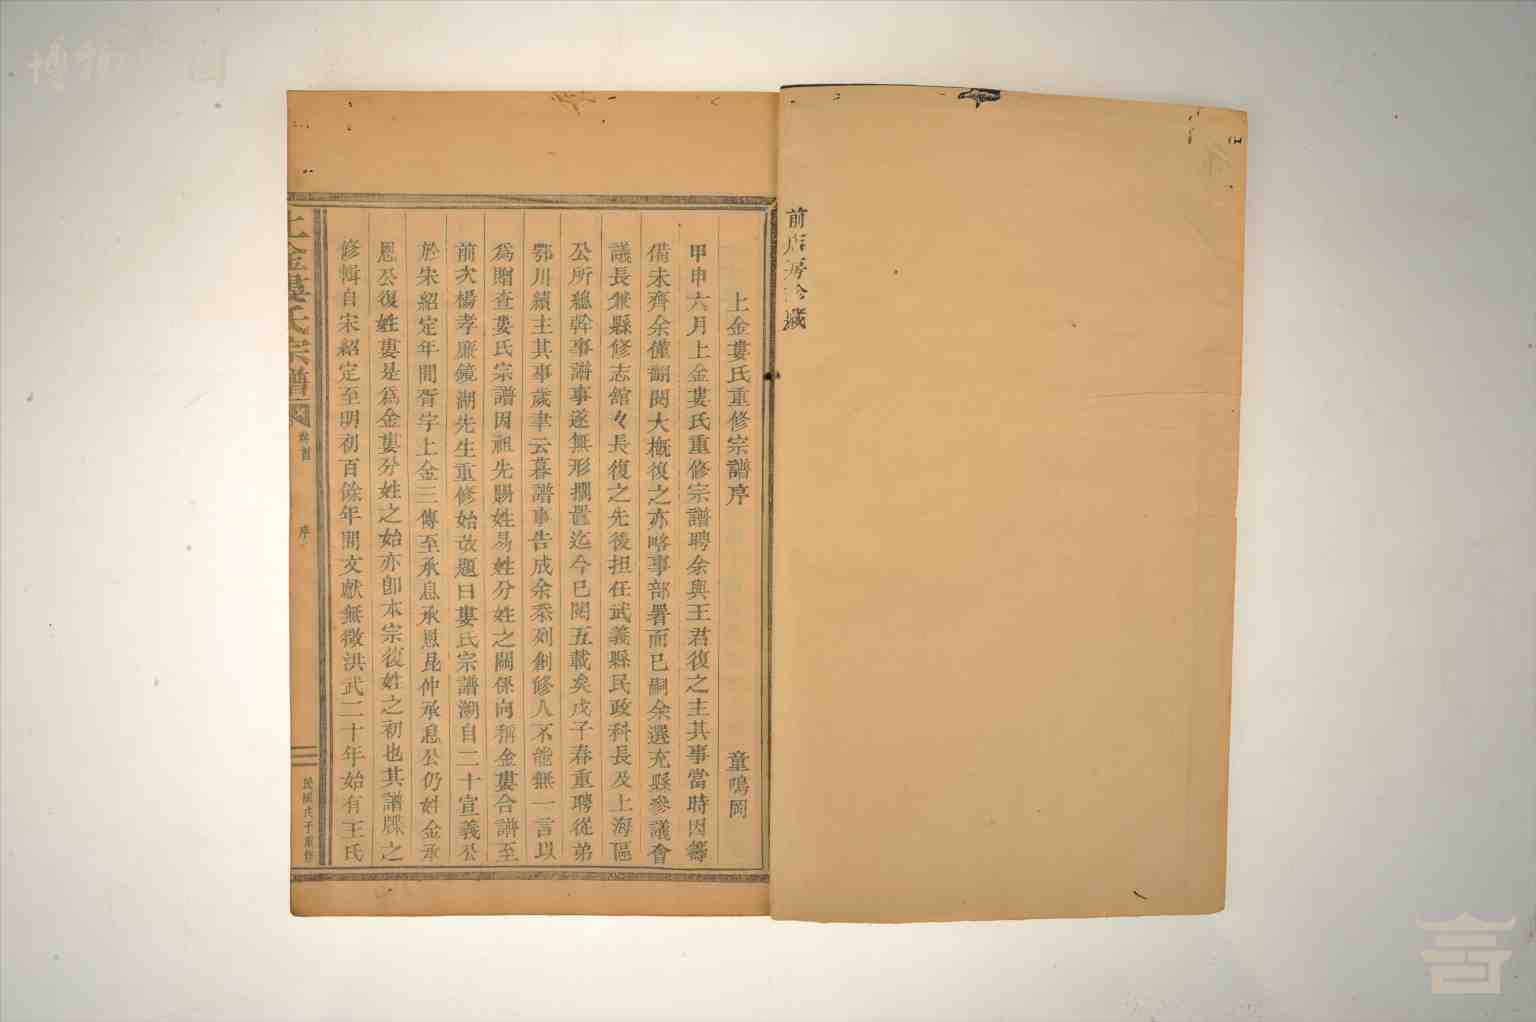 前店房珍藏
上金婁氏重修宗譜序
童鳴岡
甲申六月上金婁氏重修宗譜聘余與王君復之主其事當時因籌
備未齊余僅翻閱大概復之亦略事部署而已嗣余選充縣參議會
議長兼縣修志館々長復之先後担任武義縣民政科長及上海區
公所總幹事譜事遂無形擱置迄今已閱五載矣戊子春重聘從弟
鄂川績主其事歲聿云暮譜事告成余忝列創修人不能無一言以
為贈查婁氏宗譜因祖先賜姓易姓分姓之關係向稱金婁合譜至
前次楊孝廉鏡湖先生重修始改題曰婁氏宗譜溯自二十宣義公
於宋紹定年間胥宇上金三傳至承息承恩昆仲承息公仍姓金承
恩公復姓婁是為金婁分姓之始亦卽本宗復姓之初也其譜牒之
修輯自宋紹定至明初百餘年間文獻無徵洪武二十年始有王氏
上金婁氏宗譜
卷首
序
民國戊子重修